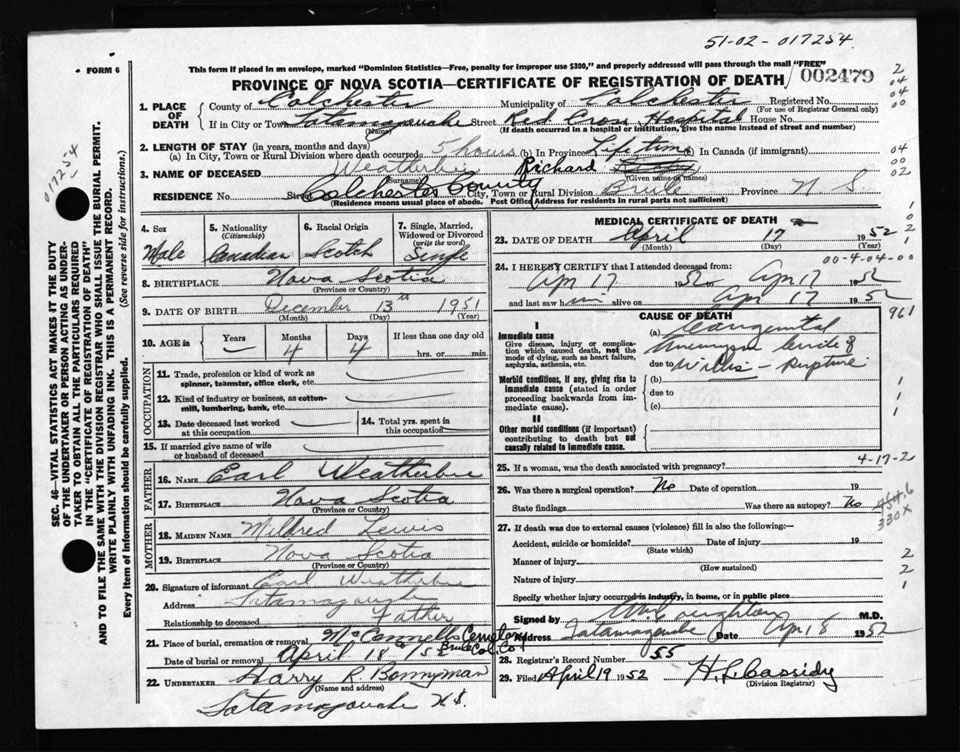 51-02-017254
FORM 6
This form if placed in an envelope, marked "Dominion Statistics—Free, penalty for improper use $300," and properly addressed will pass through the mail "FREE"
PROVINCE OF NOVA SCOTIA—CERTIFICATE OF REGISTRATION OF DEATH 002479
1. PLACE OF DEATH County of Colchester Municipality of Colchester Registered No.
(For use of Registrar General only)
If in City or Town Tatamagouche Street Red Cross Hospital House No.
(Name) (If death occurred in a hospital or institution, give the name instead of street and number)
2. LENGTH OF STAY (in years, months and days)
(a) In City, Town or Rural Division where death occurred 5 hours (b) In Province Life time (c) In Canada (if immigrant)
3. NAME OF DECEASED Weatherbie Richard
(Surname) (Given name or names)
RESIDENCE Street Colchester County City, Town or Rural Division Brule Province N S
(Residence means usual place of abode. Post Office Address for residents in rural parts not sufficient)
4. Sex Male
5. Nationality (Citizenship) Canadian
6. Racial Origin Scotch
7. Single, Married, Widowed or Divorced (write the word) Single
8. BIRTHPLACE Nova Scotia
(Province or Country)
9. DATE OF BIRTH December 13th 1951
(Month) (Day) (Year)
10. AGE in Years — Months 4 Days 4 If less than one day old
hrs. or min.
OCCUPATION
11. Trade, profession or kind of work as spinner, teamster, office clerk, etc.
12. Kind of industry or business, as cotton-mill, lumbering, bank, etc.
13. Date deceased last worked at this occupation
14. Total yrs. spent in this occupation
15. If married give name of wife or husband of deceased
FATHER
16. NAME Earl Weatherbie
17. BIRTHPLACE Nova Scotia
(Province or Country)
MOTHER
18. MAIDEN NAME Mildred Lewis
19. BIRTHPLACE Nova Scotia
(Province or Country)
20. Signature of informant Earl Weatherbie
Address Tatamagouche
Relationship to deceased Father
21. Place of burial, cremation or removal McConnells Cemetary Brule Col. Co.
Date of burial or removal April 18th/52
22. UNDERTAKER Harry R. Bonnyman
(Name and address)
Tatamagouche N.S.
MEDICAL CERTIFICATE OF DEATH
23. DATE OF DEATH April 17 1952
(Month) (Day) (Year)
00-4-04-00
24. I HEREBY CERTIFY that I attended deceased from:
Apr 17 1952 to Apr 17 1952
and last saw him alive on Apr 17 1952
CAUSE OF DEATH 961
I
Immediate cause
Give disease, injury or complication which caused death, not the mode of dying, such as heart failure, asphyxia, asthenia, etc.
(a) Congenital Aneurysm circle of
due to Willis - Rupture
Morbid conditions, if any, giving rise to immediate cause (stated in order proceeding backwards from immediate cause).
(b)
due to
(c)
II
Other morbid conditions (if important) contributing to death but not causally related to immediate cause.
4-17-2
25. If a woman, was the death associated with pregnancy?
26. Was there a surgical operation? No Date of operation 19
State findings Was there an autopsy? No
330X
27. If death was due to external causes (violence) fill in also the following:—
Accident, suicide or homicide? Date of injury 19
(State which)
Manner of injury
(How sustained)
Nature of injury
Specify whether injury occurred in industry, in home, or in public place
Signed by M.D.
Address Tatamagouche Date Apr 8 1952
28. Registrar's Record Number 55
29. Filed April 19 1952 H. L. Cassidy
(Division Registrar)
SEC. 46—VITAL STATISTICS ACT MAKES IT THE DUTY OF THE UNDERTAKER OR PERSON ACTING AS UNDERTAKER TO OBTAIN ALL THE PARTICULARS REQUIRED IN THE "CERTIFICATE OF REGISTRATION OF DEATH" AND TO FILE THE SAME WITH THE DIVISION REGISTRAR WHO SHALL ISSUE THE BURIAL PERMIT.
WRITE PLAINLY WITH UNFADING INK. THIS IS A PERMANENT RECORD.
Every item of information should be carefully supplied. (See reverse side for instructions.)
017254